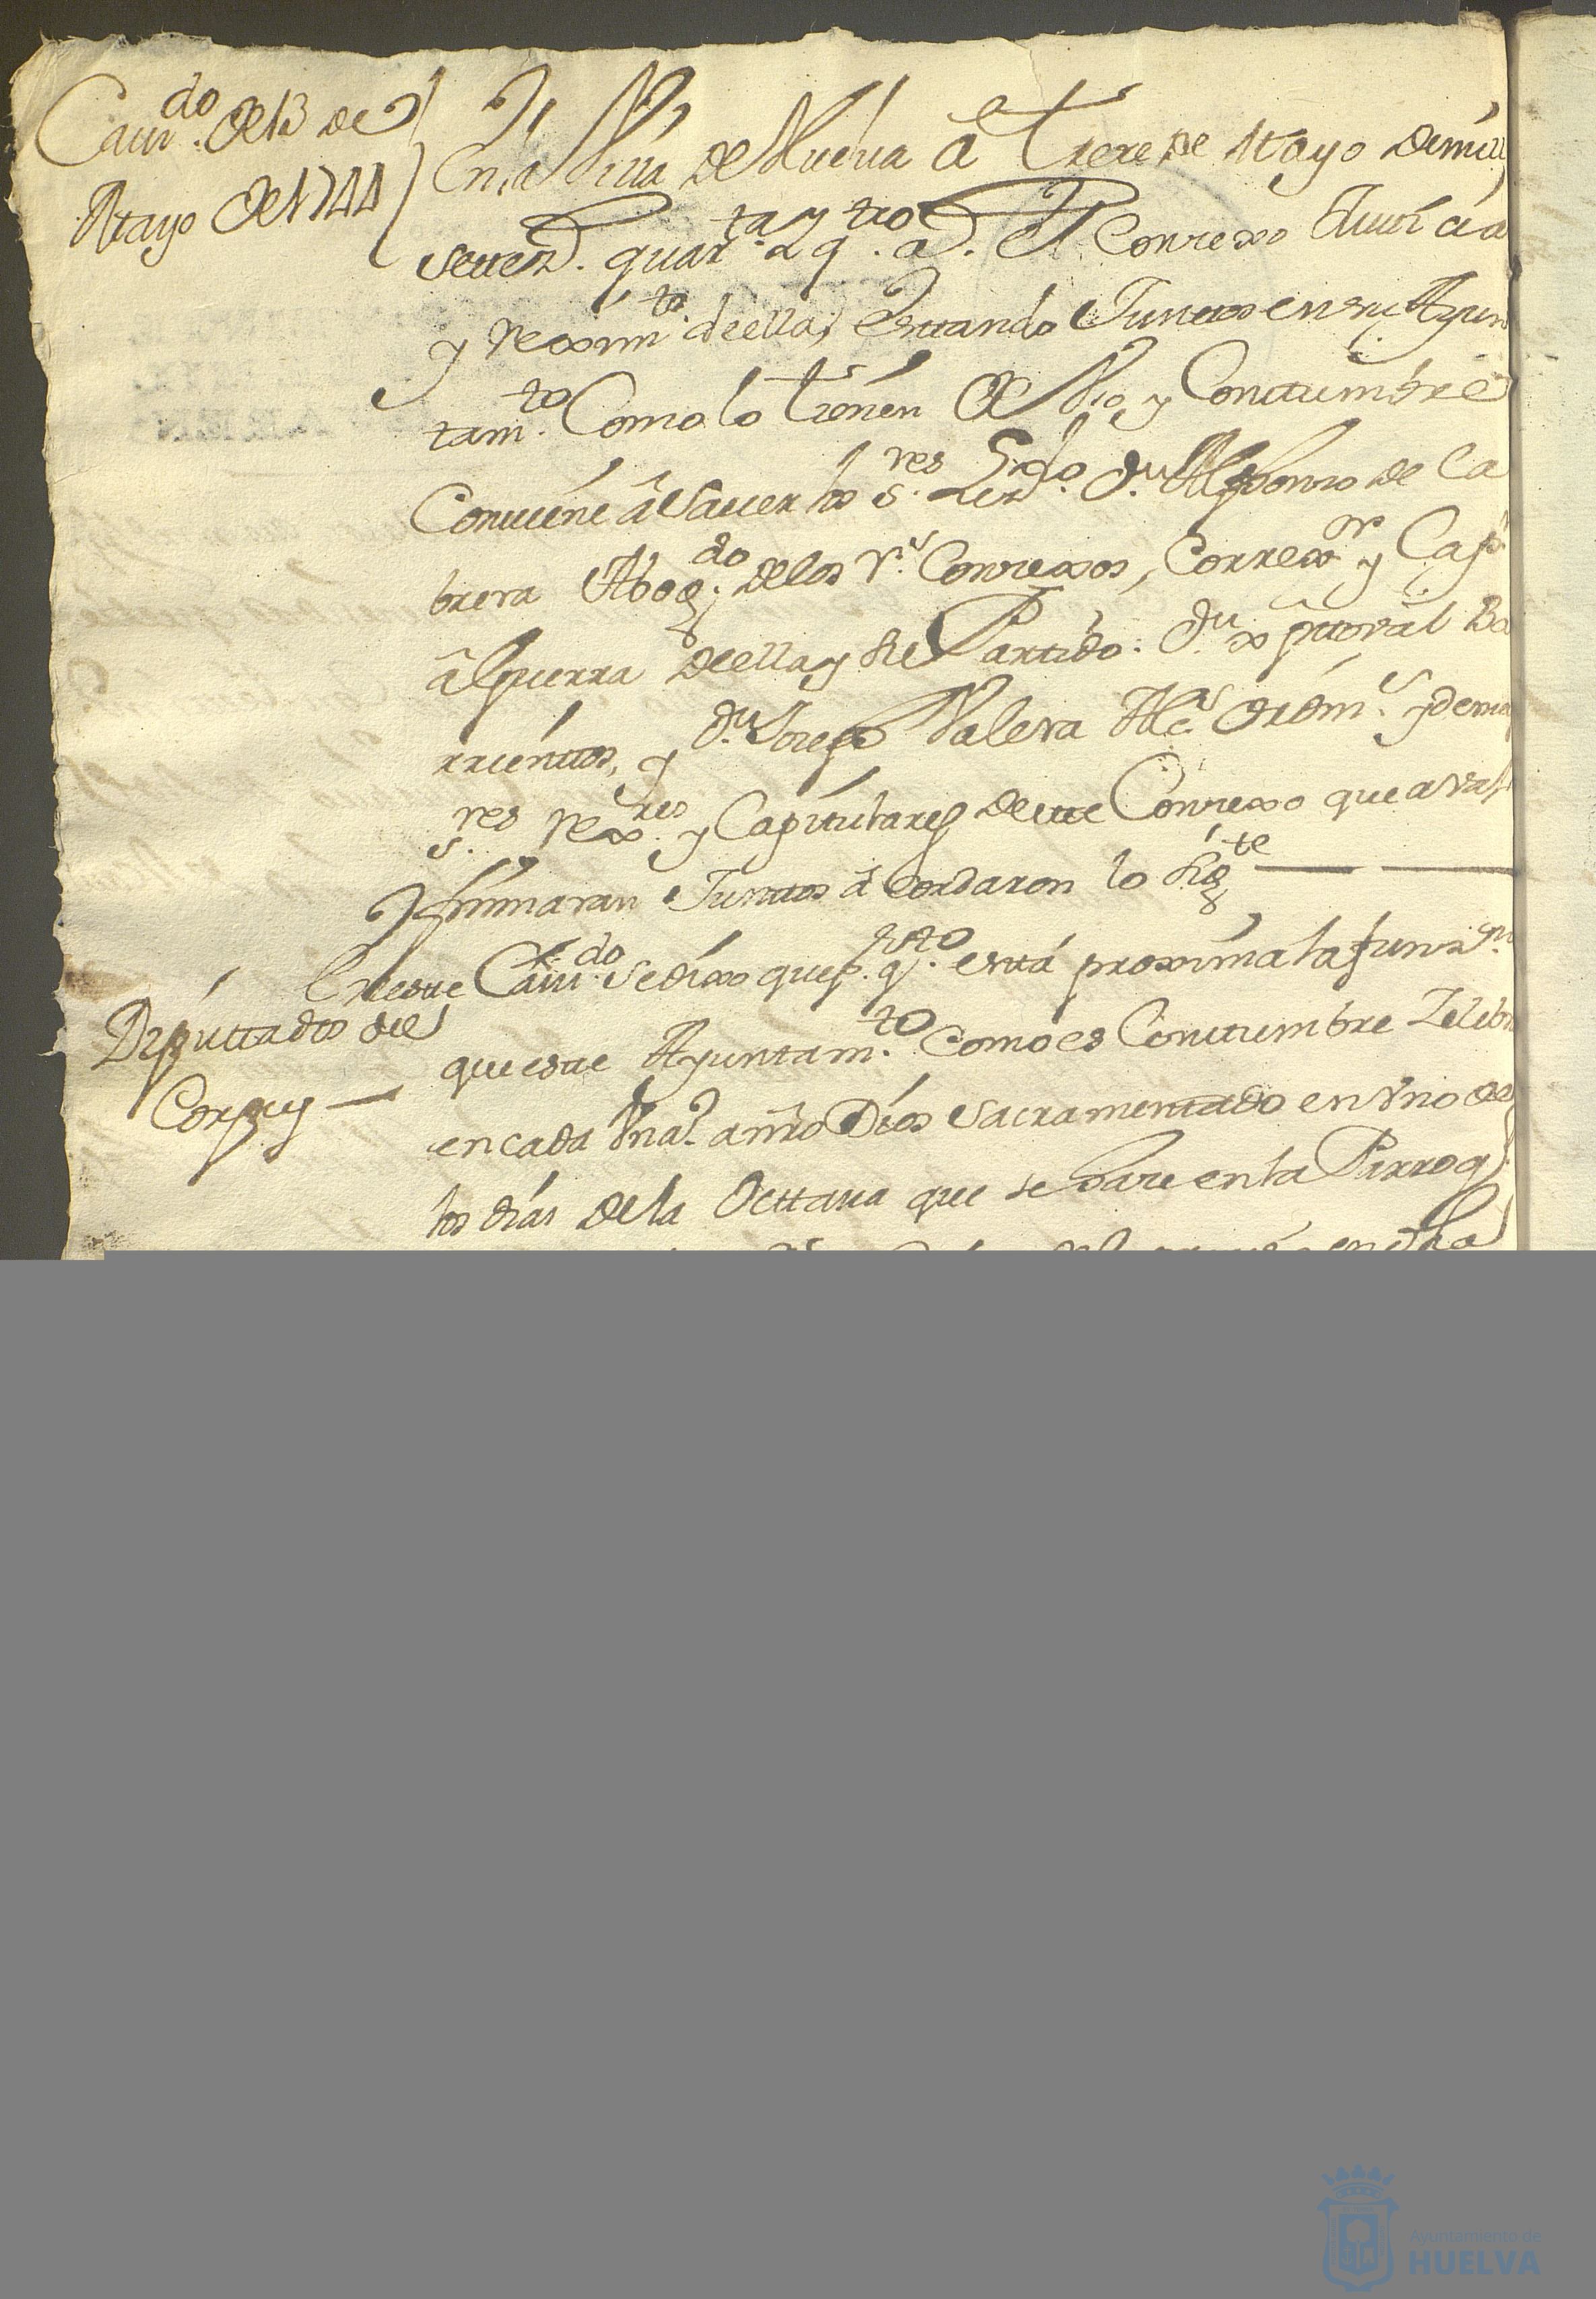 Cauu.do de 13 de
Mayo de 1744
En la Villa de Huelua â treze de Mayo de mill
settez.s quar.ta y q.tro a.s El Conzexo Justicia
y rexim.to de ella, estando Junttos en su Ayun
tam.to Como lo tienen de Vso y Costtumbre
Combiene â Sauer los s.res Lizdo. Dn. Alphonso de Ca
brera Abog.do de los Rs. Conzexos, Correx.or y Cap.n
â Guerra de ella y su Partido: Dn. Xpttoval Ba
rrienttos, y Dn. Joseph Valera Alc.s Ordin.s y demas
s.res rex.res y Capitulares de este Conzexo que avajo
firmaran Junttos â cordaron lo sig.te
Diputtados del
Corpus
En este Cauu.do se dixo que p.r q.to está proxima la funz.on
que este Ayuntam.to como es Costtumbre Zelebra
en cada Vn a.o a nro Dios Sacramentado en Vno de
los dias de la Octtava que se haze en la Parroq.l
en dha
Ayuntamiento de
HUELVA